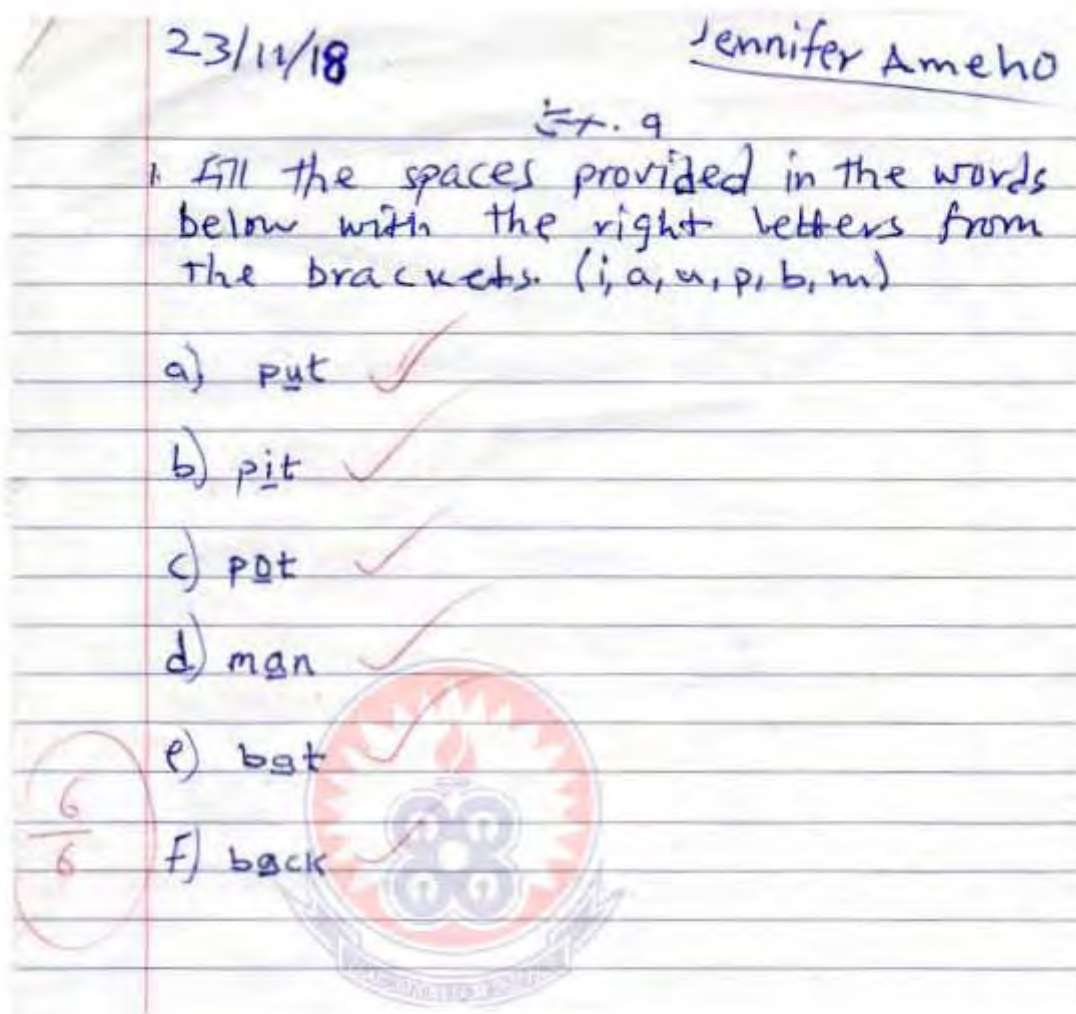 23/11/18
Jennifer Ameho
Ex. 9
1. Fill the spaces provided in the words
below with the right letters from
the brackets. (i, a, u, p, b, m)
a) put
b) pit
c) pot
d) man
e) bat
6
6
f) back